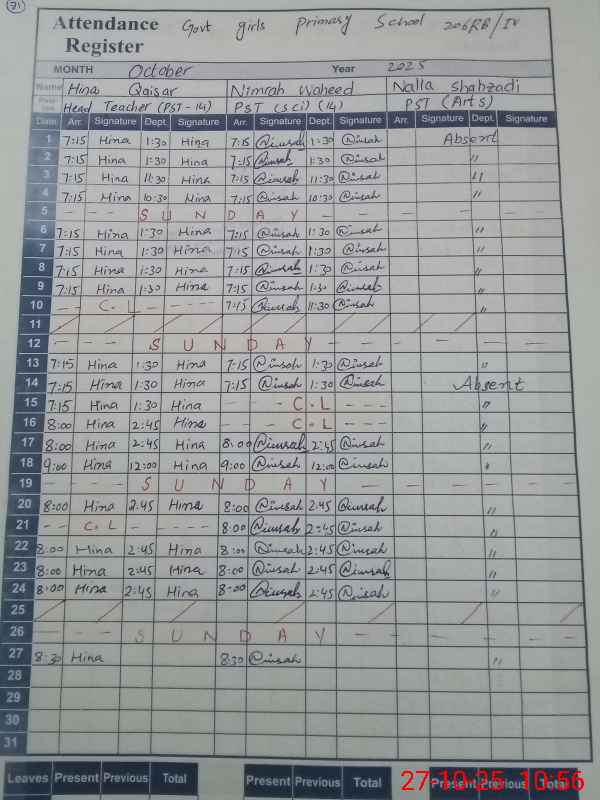 31
Attendance Register Govt girls Primary School 206RB/IV
MONTH October Year 2025
Name Hina Qaisar Nimrah Waheed Nalla Shahzadi
Head Teacher (PST-14) PST (Sci) (14) PST (Arts)
Date Arr. Signature Dept. Signature Arr. Signature Dept. Signature Arr. Signature Dept. Signature
1 7:15 Hina 1:30 Hina 7:15 1:30 Absent
2 7:15 Hina 1:30 Hina 7:15 1:30 "
3 7:15 Hina 11:30 Hina 7:15 11:30 "
4 7:15 Hina 10:30 Hina 7:15 10:30 "
5 - - - S U N D A Y - - - - -
6 7:15 Hina 1:30 Hina 7:15 1:30 "
7 7:15 Hina 1:30 Hina 7:15 1:30 "
8 7:15 Hina 1:30 Hina 7:15 1:30 "
9 7:15 Hina 1:30 Hina 7:15 1:30 "
10 - - C.L - - - - 7:15 11:30 "
11
12 - - - S U N D A Y - - - - -
13 7:15 Hina 1:30 Hina 7:15 1:30 "
14 7:15 Hina 1:30 Hina 7:15 1:30 Absent
15 7:15 Hina 1:30 Hina - - - C.L - - - "
16 8:00 Hina 2:45 Hina - - - C.L - - - "
17 8:00 Hina 2:45 Hina 8:00 2:45 "
18 9:00 Hina 12:00 Hina 9:00 12:00 "
19 - - - S U N D A Y - - - - -
20 8:00 Hina 2:45 Hina 8:00 2:45 "
21 - - C.L - - - - 8:00 2:45 "
22 8:00 Hina 2:45 Hina 8:00 2:45 "
23 8:00 Hina 2:45 Hina 8:00 2:45 "
24 8:00 Hina 2:45 Hina 8:00 2:45 "
25
26 - - - S U N D A Y - - - - -
27 8:30 Hina 8:30 "
28
29
30
31
Leaves Present Previous Total Present Previous Total Present Previous Total
27-10-25 10:56